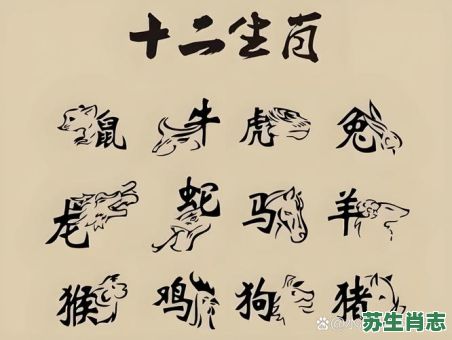 十二生肖
鼠 牛 虎 兔
龙 蛇 马 羊
猴 鸡 狗 猪
苏生肖志